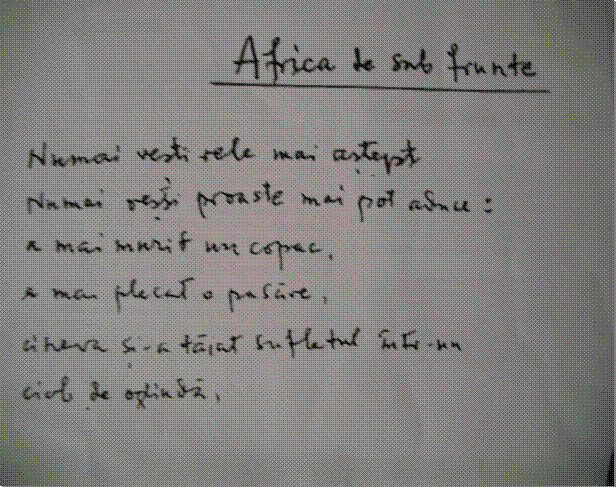 Africa de sub frunte
Numai vești rele mai aștept
Numai vești proaste mai pot aduce:
a mai murit un copac,
a mai plecat o pasăre,
cineva și-a tăiat sufletul într-un
ciob de oglindă,